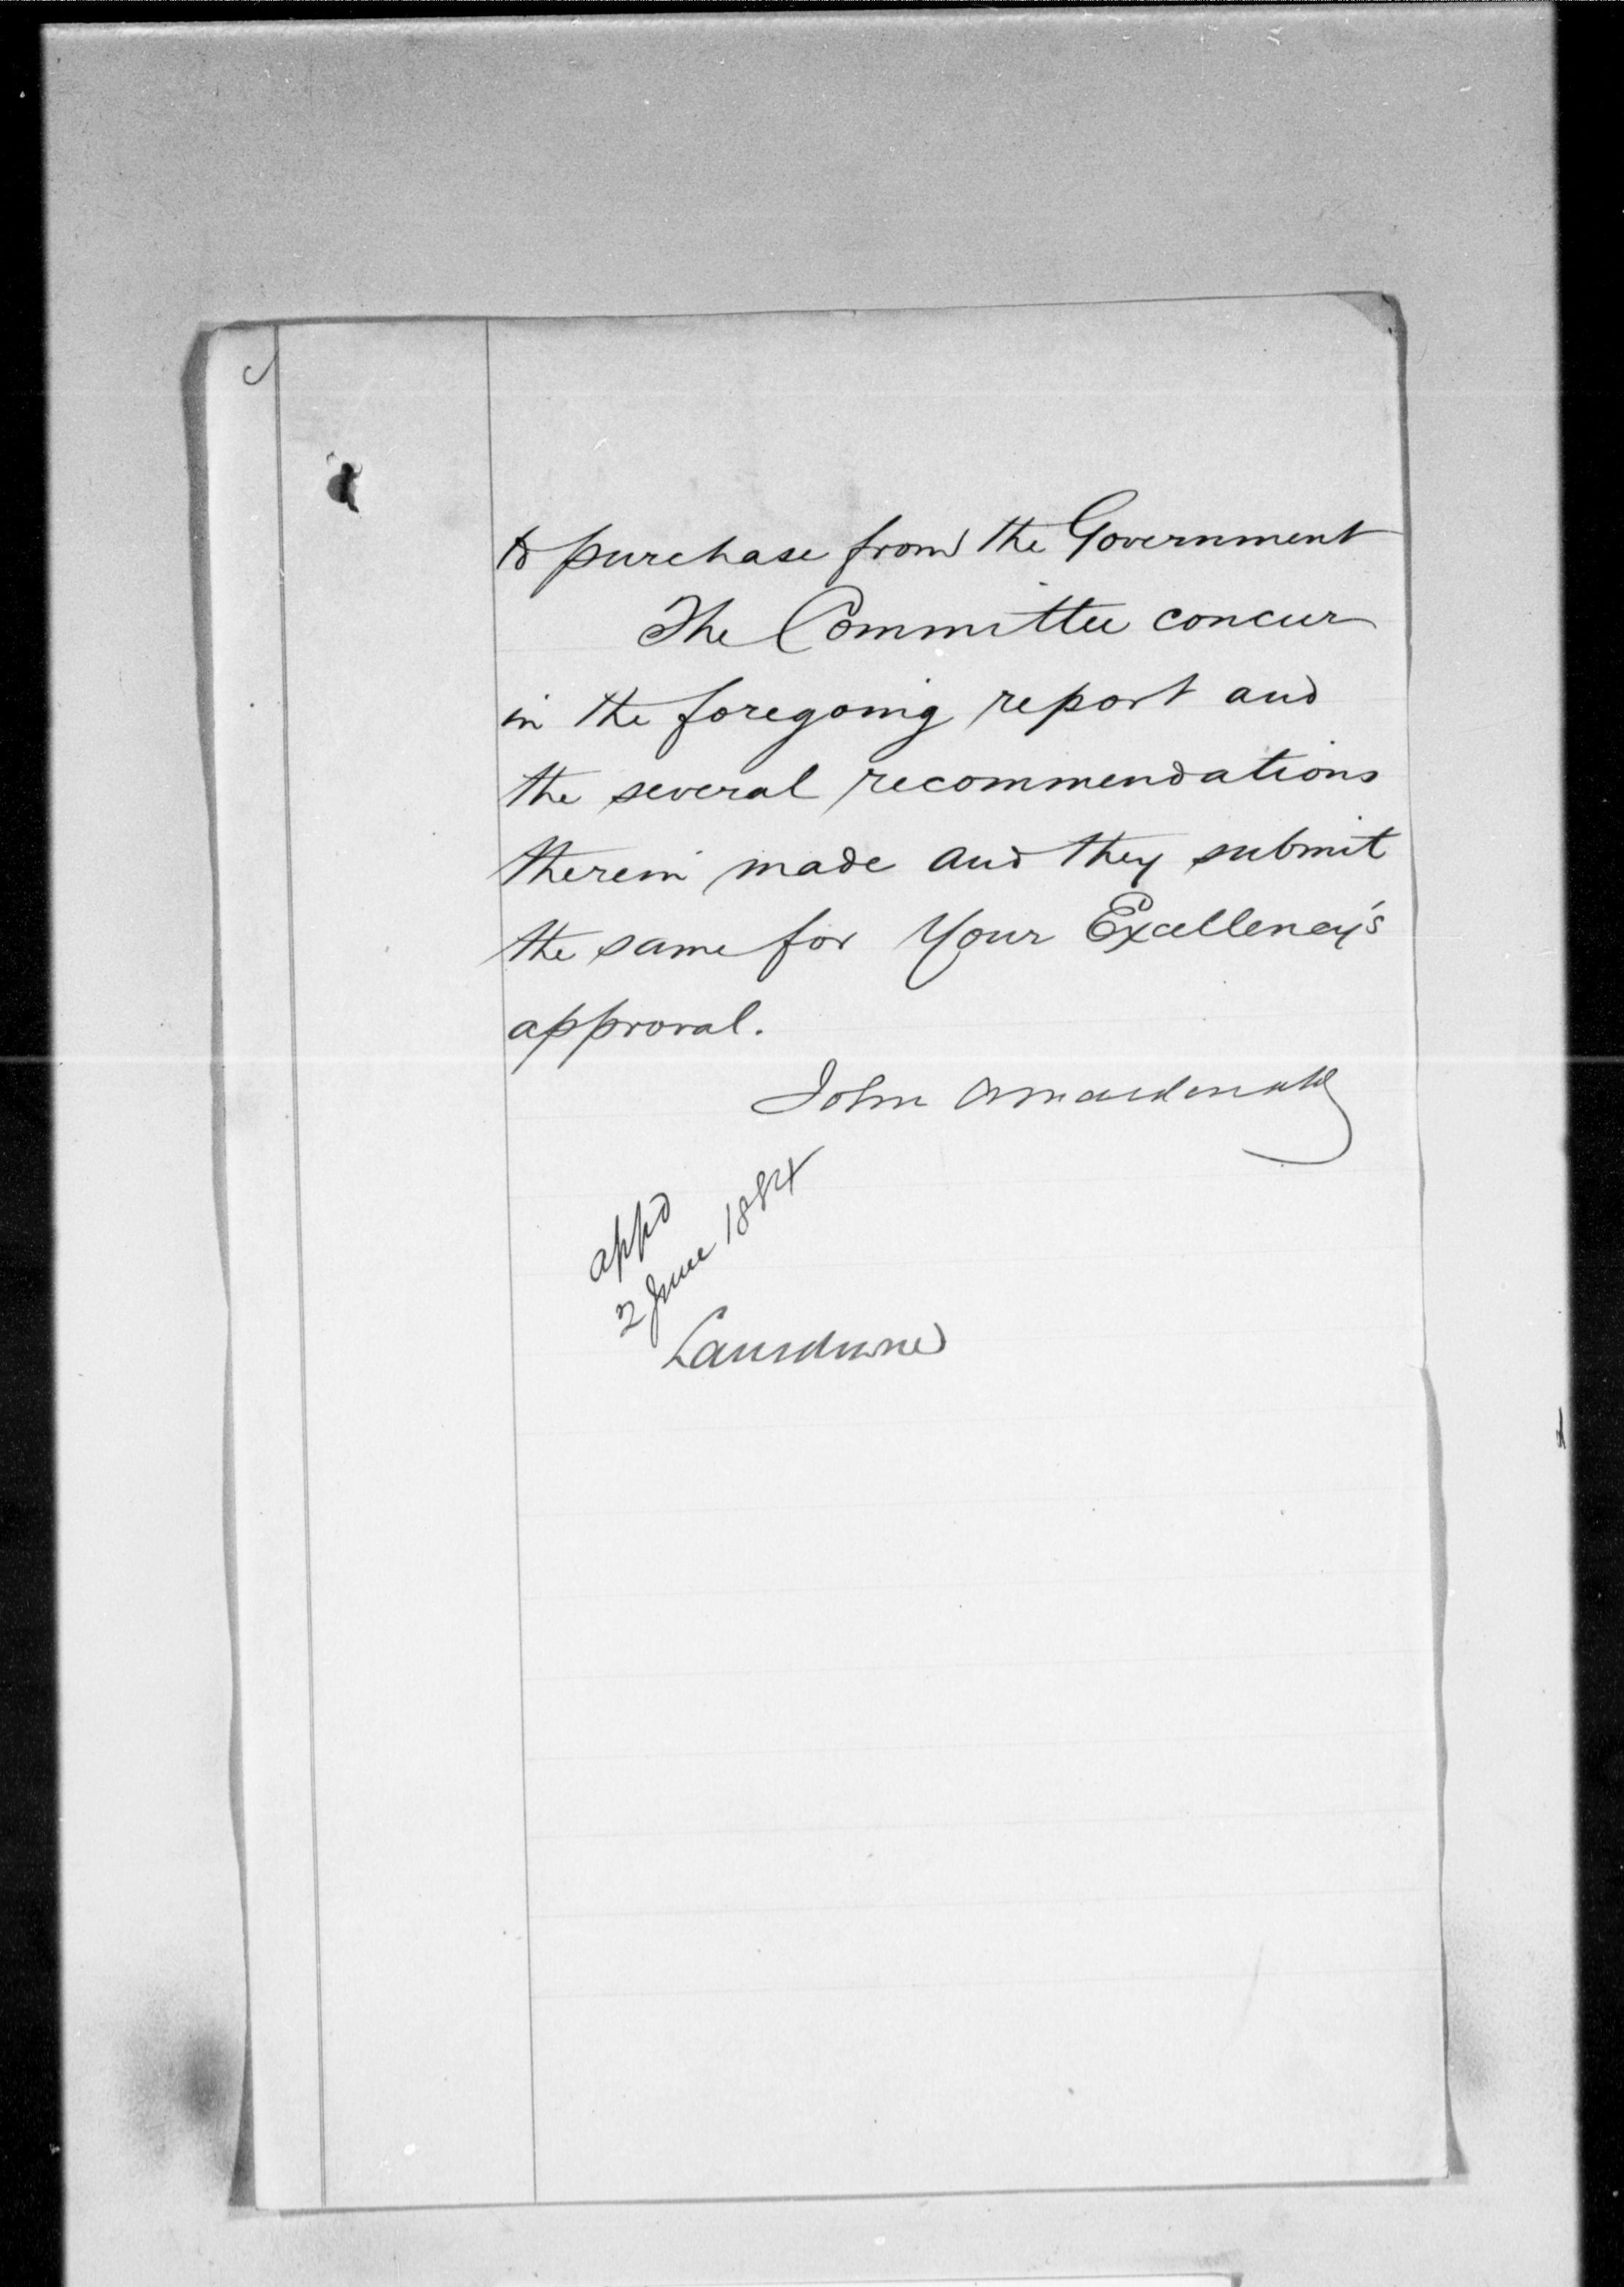 to purchase from the Government
The Committee concur
in the foregoing report and
the several recommendations
therein made and they submit
the same for Your Excellency's
approval.
John A Macdonald
appd
2 June 1884
Lansdowne